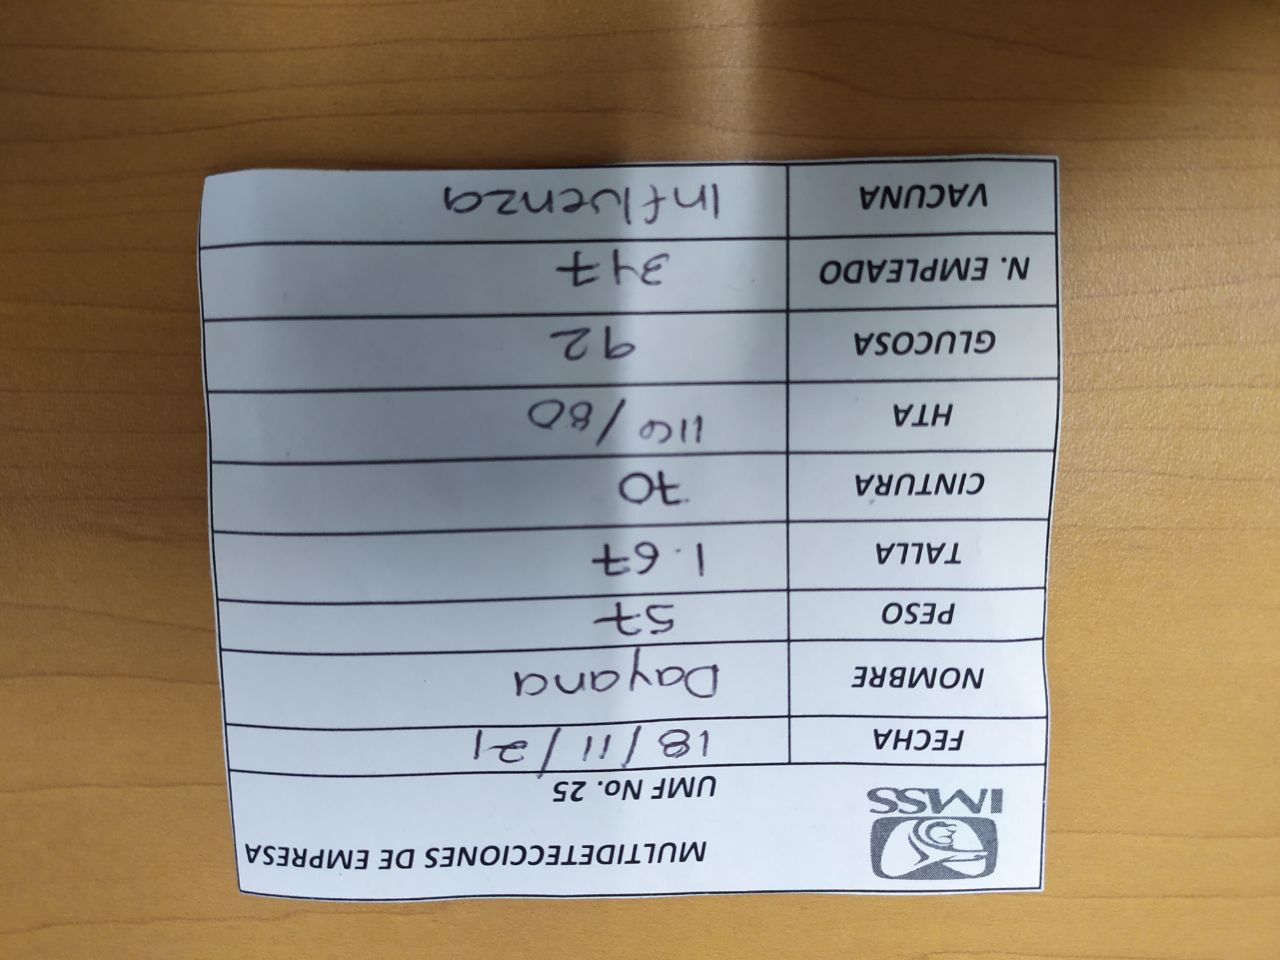 MULTIDETECCIONES DE EMPRESA
IMSS
UMF No. 25
FECHA 18/11/21
NOMBRE Dayana
PESO 57
TALLA 1.67
CINTURA 70
HTA 116/80
GLUCOSA 92
N. EMPLEADO 347
VACUNA Influenza